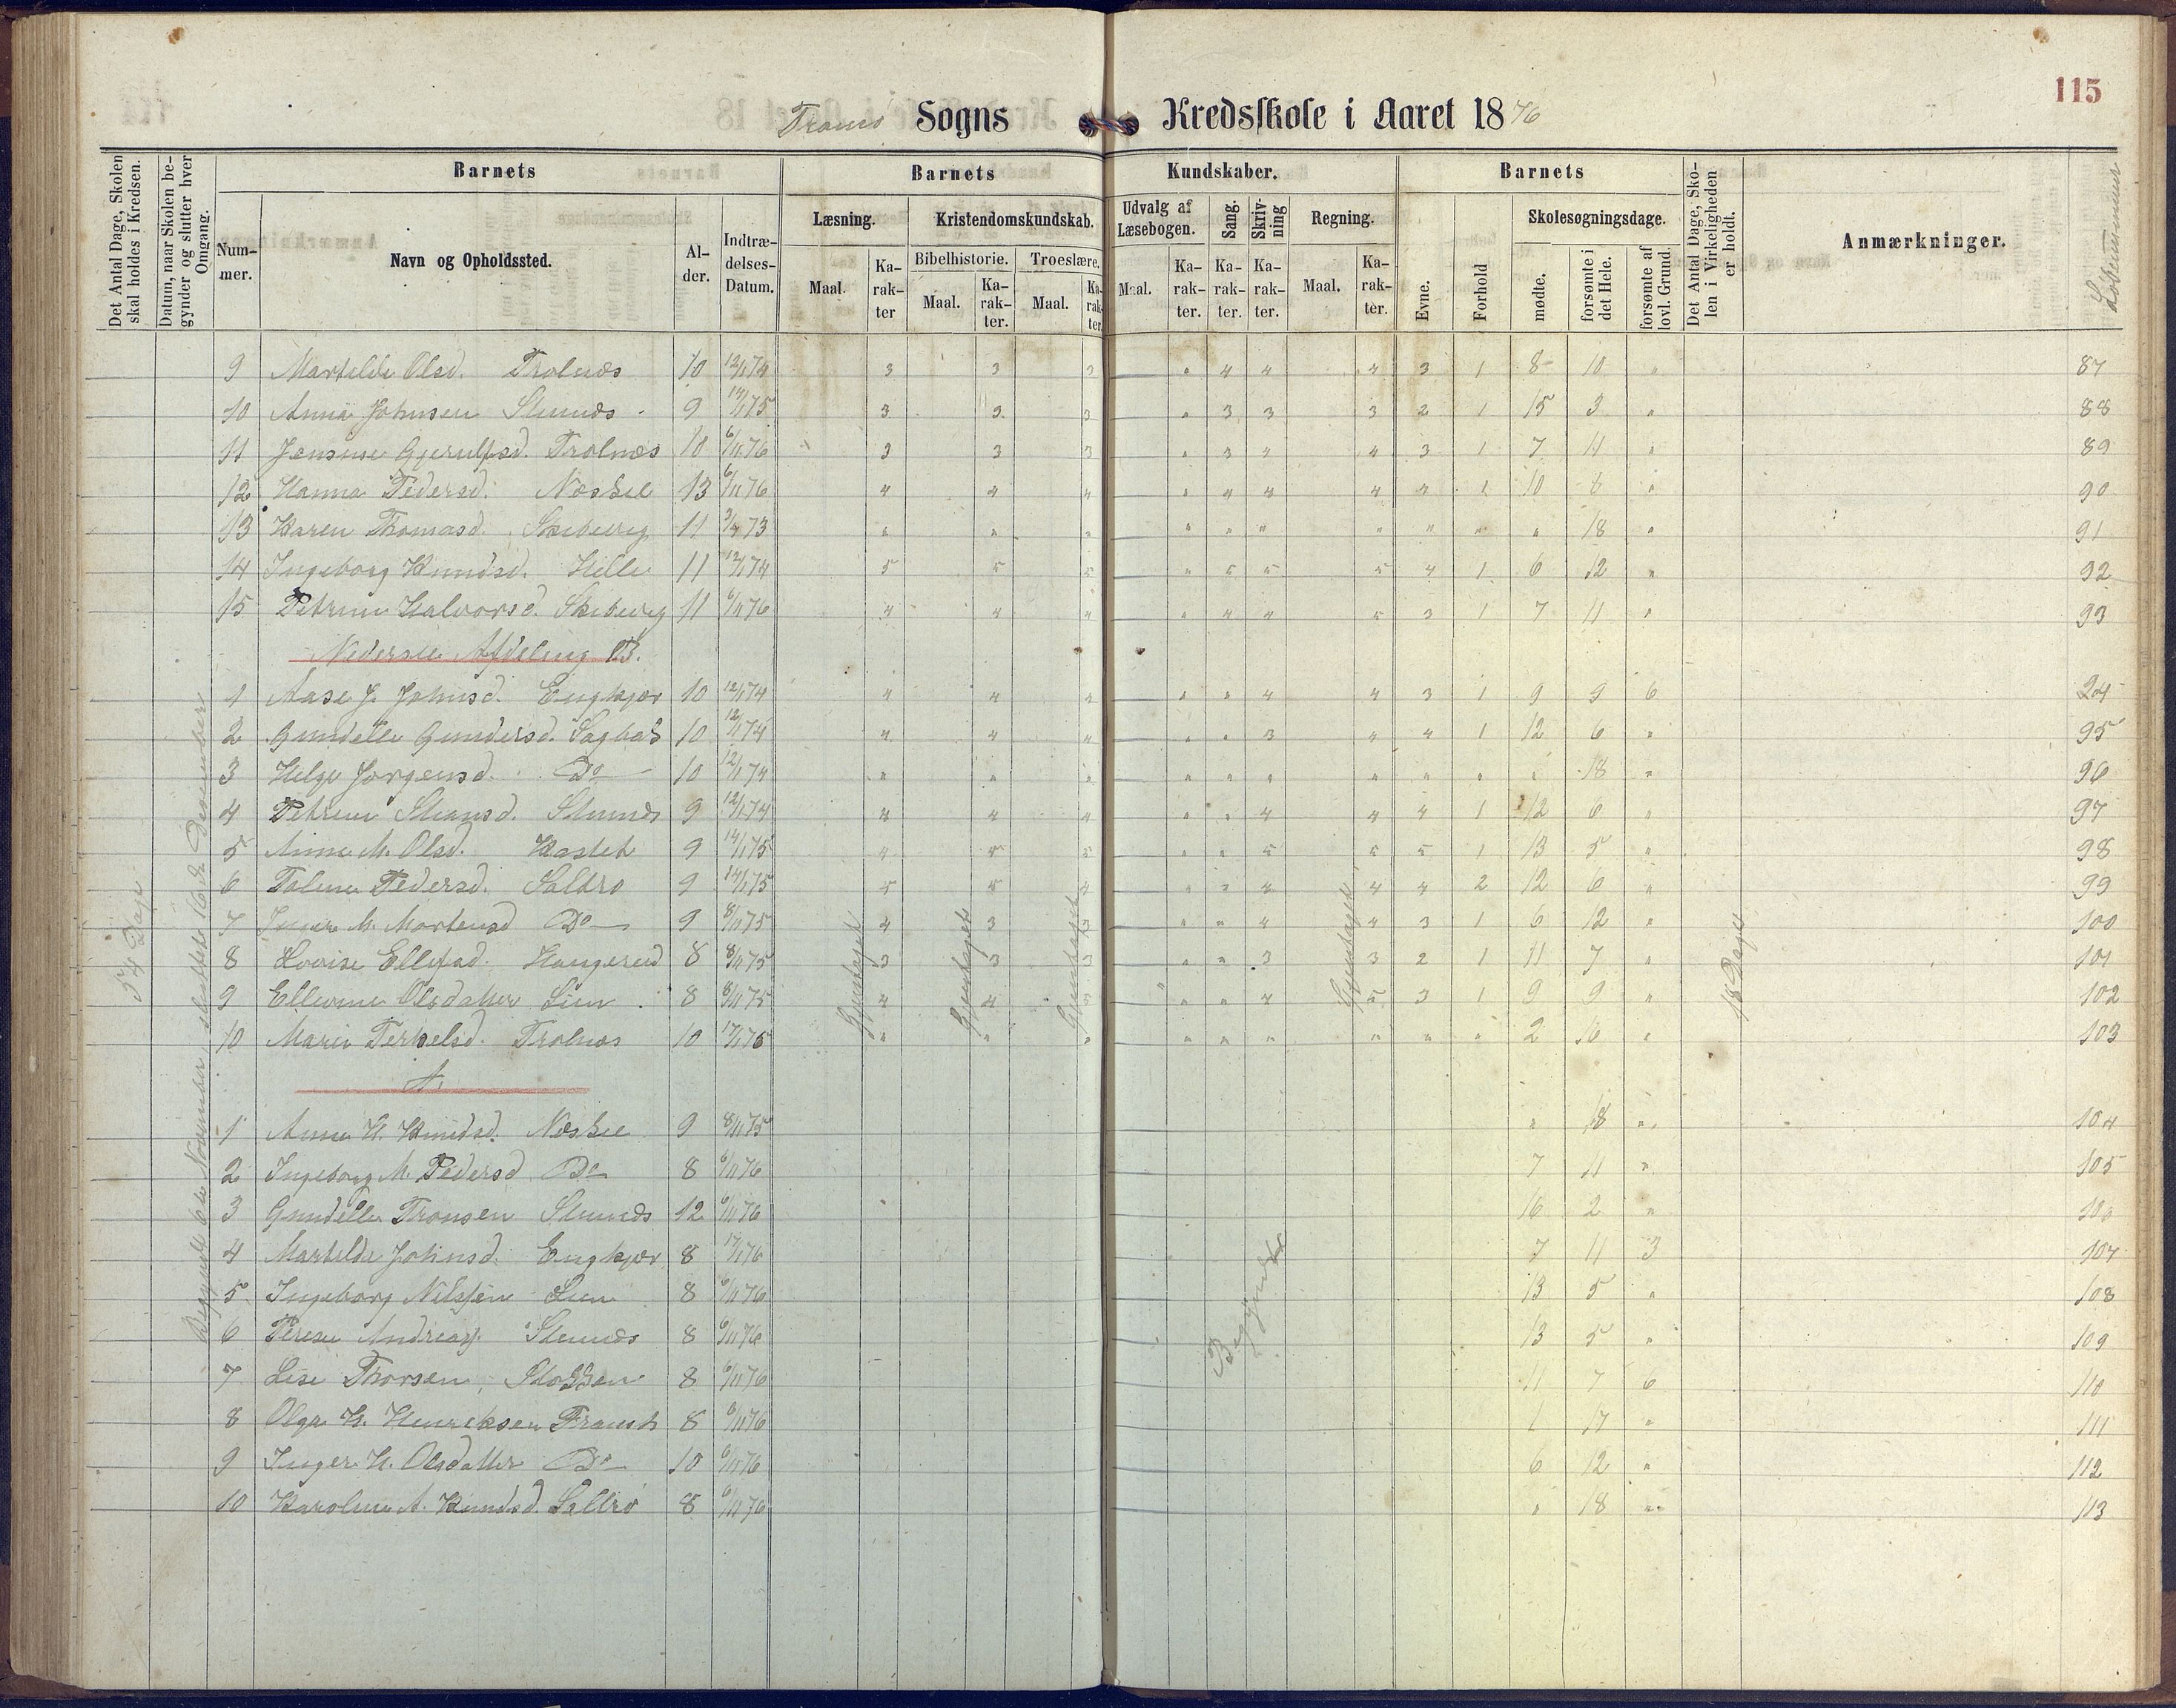 115
Tromø Sogns Kredsskole i Aaret 1876
Det Antal Dage, Skolen skal holdes i Kredsen.
Datum, naar Skolen begynder og slutter hver Omgang.
Barnets
Nummer.
Navn og Opholdssted.
Alder.
Indtrædelses-Datum.
Barnets Kundskaber.
Læsning.
Maal.
Karakter
Kristendomskundskab.
Bibelhistorie.
Maal.
Karakter.
Troeslære.
Maal.
Karakter.
Udvalg af Læsebogen.
Maal.
Karakter.
Sang.
Karakter.
Skrivning
Karakter.
Regning.
Maal.
Karakter.
Barnets
Evne.
Forhold
Skolesøgningsdage.
mødte.
forsømte i det Hele.
forsømte af lovl. Grund.
Det Antal Dage, Skolen i Virkeligheden er holdt.
Anmærkninger.
Løbenummer
9 Martilde Olsd. Trolnæs 10 12/1 74 3 3 3 " 4 4 4 3 1 8 10 " 87
10 Anna Johnsen Stunæs 9 14/1 75 3 3 3 " 3 3 3 2 1 15 3 " 88
11 Jensine Gjerulfsd. Trolnæs 10 6/11 76 3 3 3 " 3 4 4 3 1 7 11 " 89
12 Hanna Pedersd. Næskil 13 6/11 76 4 4 4 " 4 4 4 4 1 10 8 " 90
13 Karen Thomasd. Skiberig 11 3/4 73 " " " " " " " " " " 18 " 91
14 Ingeborg Knudsd. Hille 11 12/1 74 5 5 5 " 5 5 5 4 1 6 12 " 92
15 Petrine Halvorsd. Skiberig 11 6/11 76 4 4 4 " 4 4 5 3 1 7 11 " 93
Nederste Afdeling B.
1 Aase J. Johnsd. Engkjær 10 12/1 74 4 4 4 " " 4 4 3 1 9 9 6 24
2 Gundelle Gundersd. Sagbak 10 12/1 74 4 4 4 " " 3 4 4 1 12 6 " 95
3 Helge Jørgensd. Do 10 12/1 74 " " " " " " " " " " 18 " 96
4 Petrine Stiansd. Stunæs 9 12/1 74 4 4 4 " " 4 4 4 1 12 6 " 97
5 Anna M. Olsd. Hastet 9 14/1 75 4 5 5 " " 5 5 5 1 13 5 " 98
6 Taline Pedersd. Saltrø 9 14/1 75 5 5 4 " " 4 4 4 2 12 6 " 99
7 Inger M. Mortensd Do 9 8/11 75 4 3 3 " " 4 4 3 1 6 12 " 100
8 Lovise Ellefsd. Haugerud 8 8/11 75 3 3 3 " " 3 3 2 1 11 7 " 101
9 Ellevine Olsdatter Lien 8 8/11 75 4 4 " " 4 5 3 1 9 9 " 102
10 Marie Terkelsd. Trolnæs 10 17/1 75 " " " " " " " " " 2 16 " 103
A.
1 Anna K. Knudsd. Næskil 9 8/11 75 " 18 " 104
2 Ingeborg M. Pedersd Do 8 6/11 76 7 11 " 105
3 Gundelle Tronsen Stunæs 12 6/11 76 16 2 " 106
4 Martilde Johnsd. Engkjær 8 17/1 76 7 11 3 107
5 Ingeborg Nilssen Lien 8 6/11 76 13 5 " 108
6 Terese Andreass. Stunæs 8 6/11 76 13 5 " 109
7 Lise Thorsen, Stokken 8 6/11 76 11 7 6 110
8 Olga H. Henriksen 8 6/11 76 1 17 " 111
9 Inger H. Olsdatter Do 10 6/11 76 6 12 " 112
10 Karoline A. Knudsd. Saltrø 8 6/11 76 " 18 " 113
54 Dage
Begyndt 6te November, sluttet 16de December
Gjentaget
Gjentaget
Gjentaget
Gjentaget
18 Dage
Begyndte